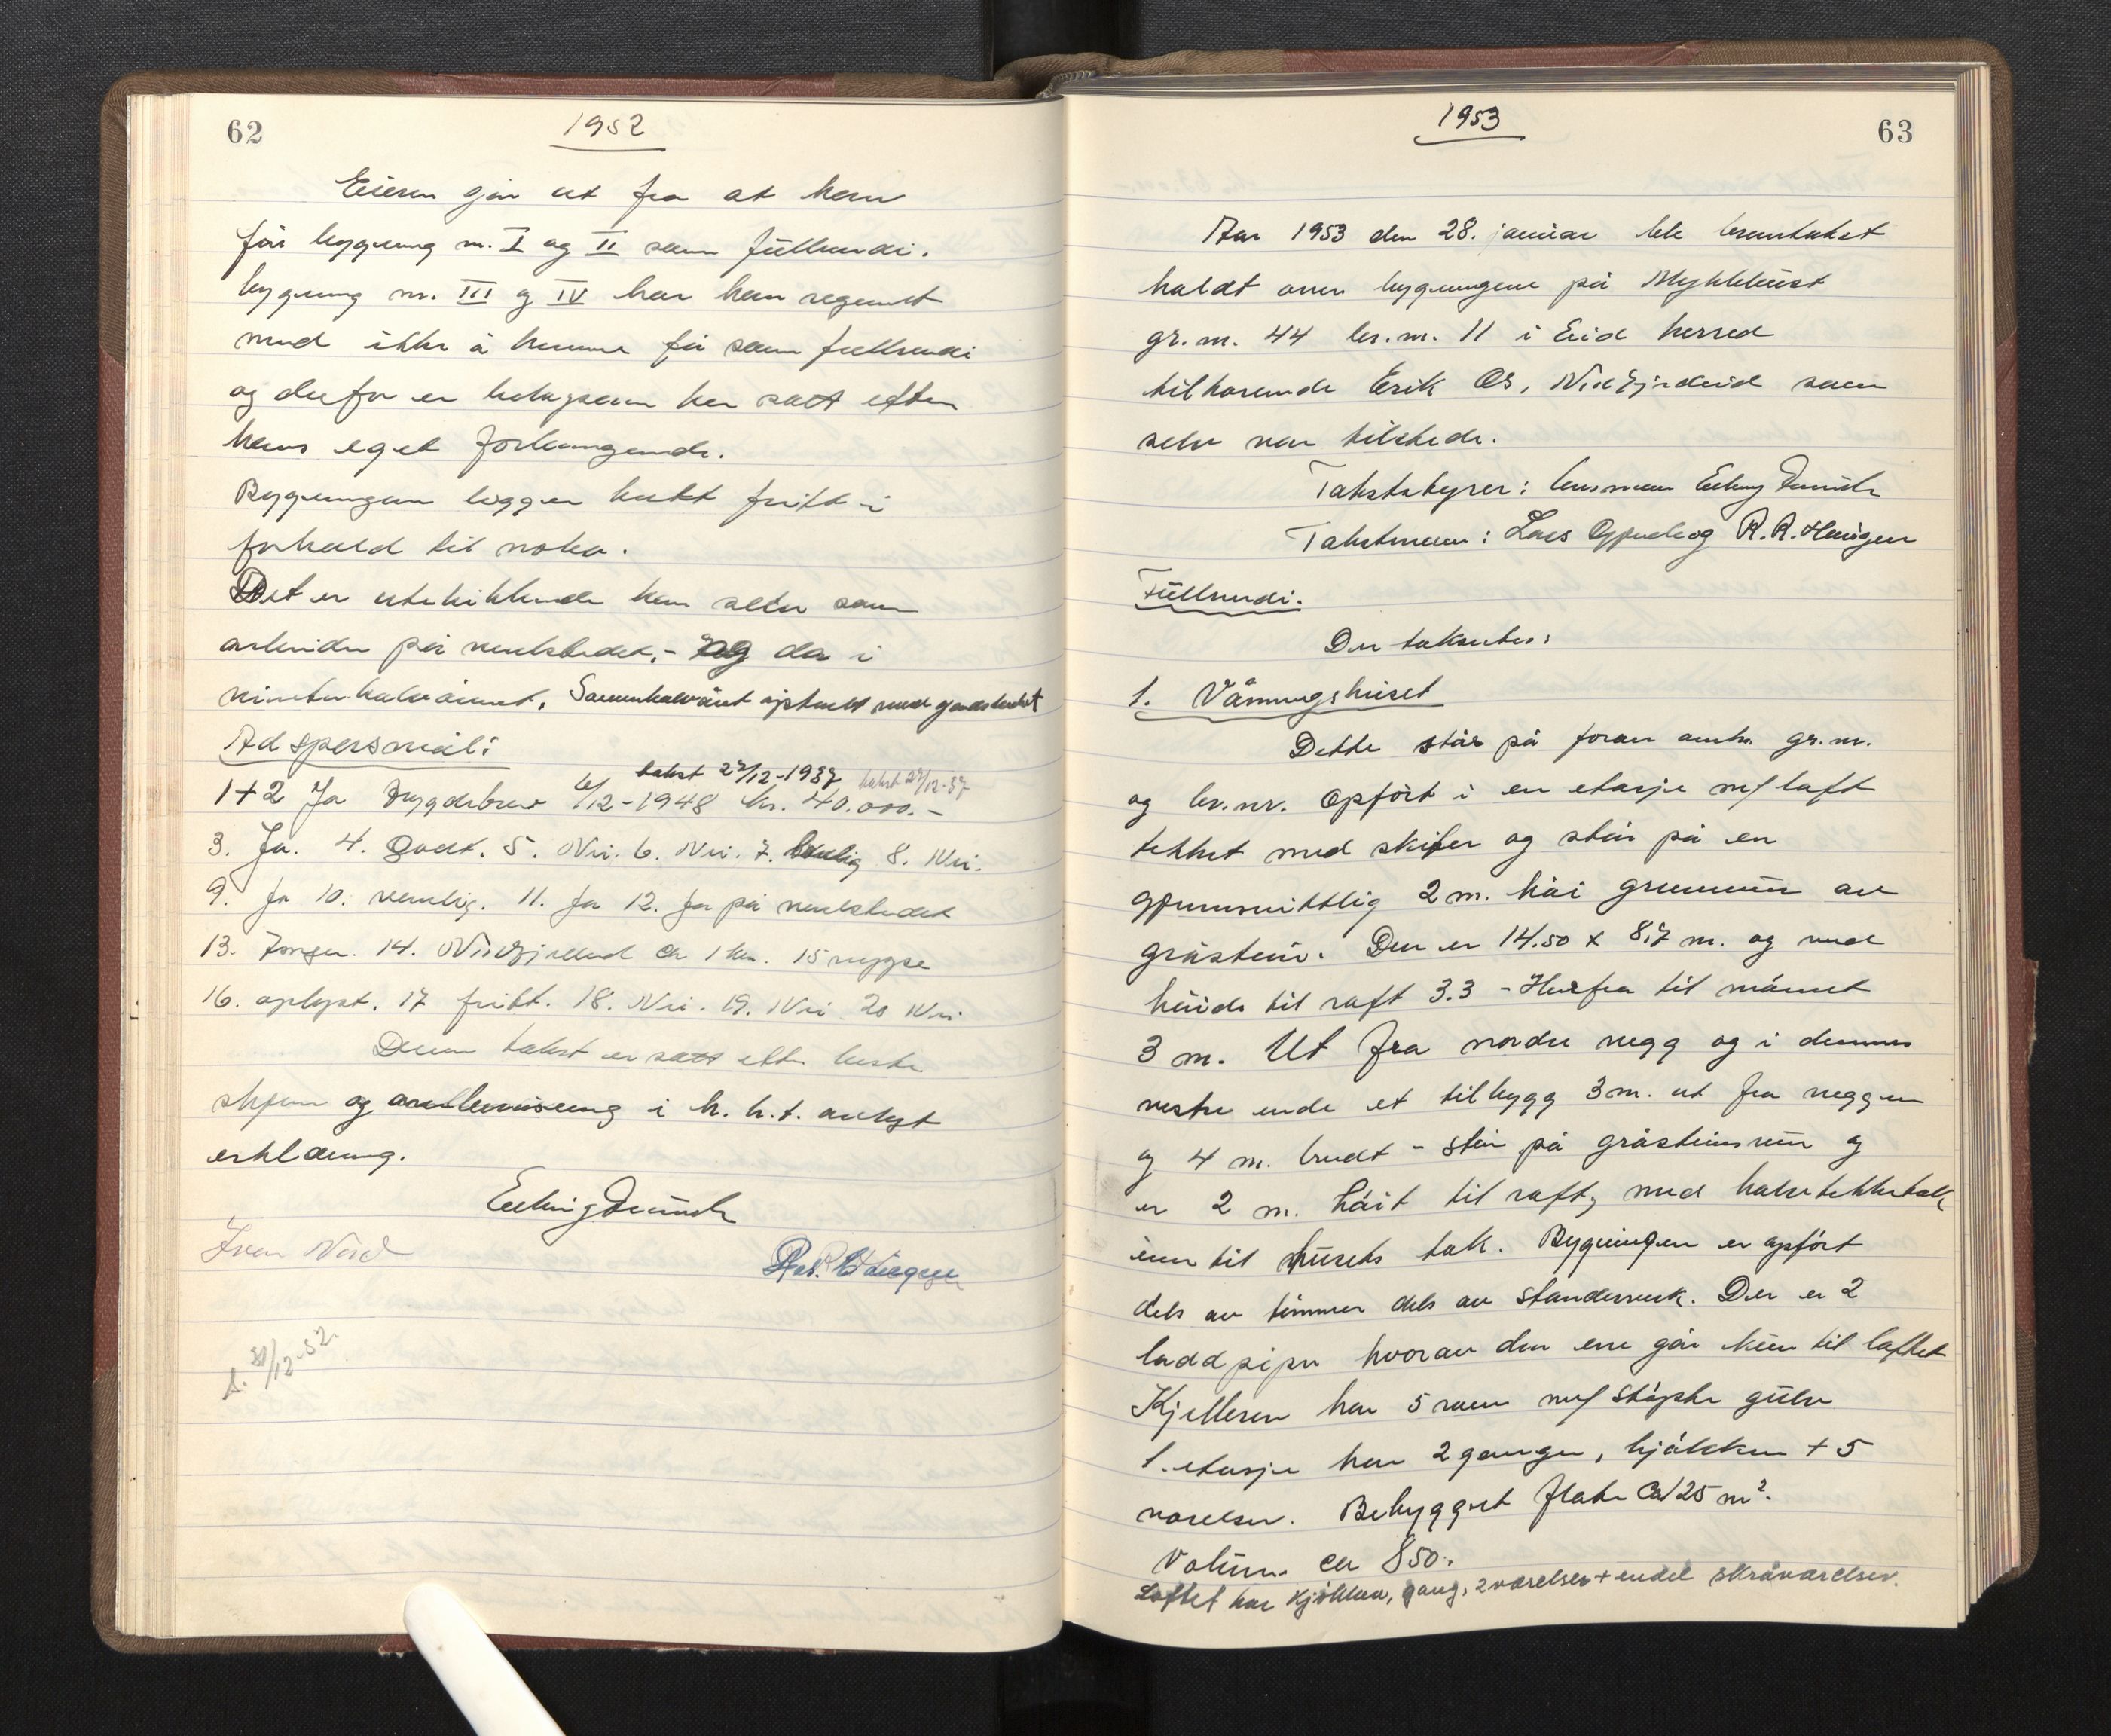 62
1952
Eieren går ut fra at han
får bygning nr. I og II som fullverdi.
bygning nr. III og IV har han regnet
med ikke å kunne få som fullverdi
og derfor er beløpene her satt efter
hans eget forlangende.
Bygningen ligger heilt fritt i
forhold til
Det er utelukkende han selv som
arbeider på verkstedet, - og da i
vinterhalvåret. Sommerhalvåret optatt med gardsbruket
Ad spørsmål:
takst 27/12-1937 takst 27/12-37
1+2 Ja Trygdebrev 6/12-1948 kr. 40.000.-
3. Ja. 4. Godt. 5. Nei. 6. Nei. 7. 8. Nei.
9. Ja 10. vanlig. 11. Ja 12. Ja på verkstedet
13. Ingen. 14. ca 1 km. 15 trygge
16. oplyst. 17 fritt. 18. Nei. 19. Nei 20 Nei
Denne takst er satt efter beste
skjønn og i h. h. t. avlagt
erklæring.
Iver Nord
R. R. Haugen
31/12-52.
1953
63
Aar 1953 den 28. januar ble branntakst
haldt over bygningene på Myklebust
gr.nr. 44 br.nr. 11 i Eid herred
tilhørende Erik Os, Nordfjordeid som
selv var tilstede.
Takstbestyrer: lensmann Erling
Takstmenn: Lars og R. R. Haugen
Fullverdi.
Der takseres:
1. Våningshuset
Dette står på foran anf. gr.nr.
og br.nr. Opført i en etasje m/ loft
tekket med skifer og står på en
gjennomsnittlig 2 m. høi grunnmur av
gråstein. Den er 14.50 x 8,7 m. og med
høide til raft 3.3 - Herfra til mønet
3 m. Ut fra nordre vegg og i dennes
vestre ende et tilbygg 3 m. ut fra veggen
og 4 m. bredt - står på gråsteinsmur og
er 2 m. høit til raft, med halvtekketak
inn til husets tak. Bygningen er opført
dels av tømmer dels av standerverk. Der er 2
laddpiper hvorav den ene går kun til loftet
Kjelleren har 5 rom m/ støpte gulv
1. etasje har 2 ganger, kjøkken + 5
værelser. Bebygget flate ca 125 m².
Volum ca 850.
Loftet har kjøkken, gang, 2 værelser + endel skråværelser.